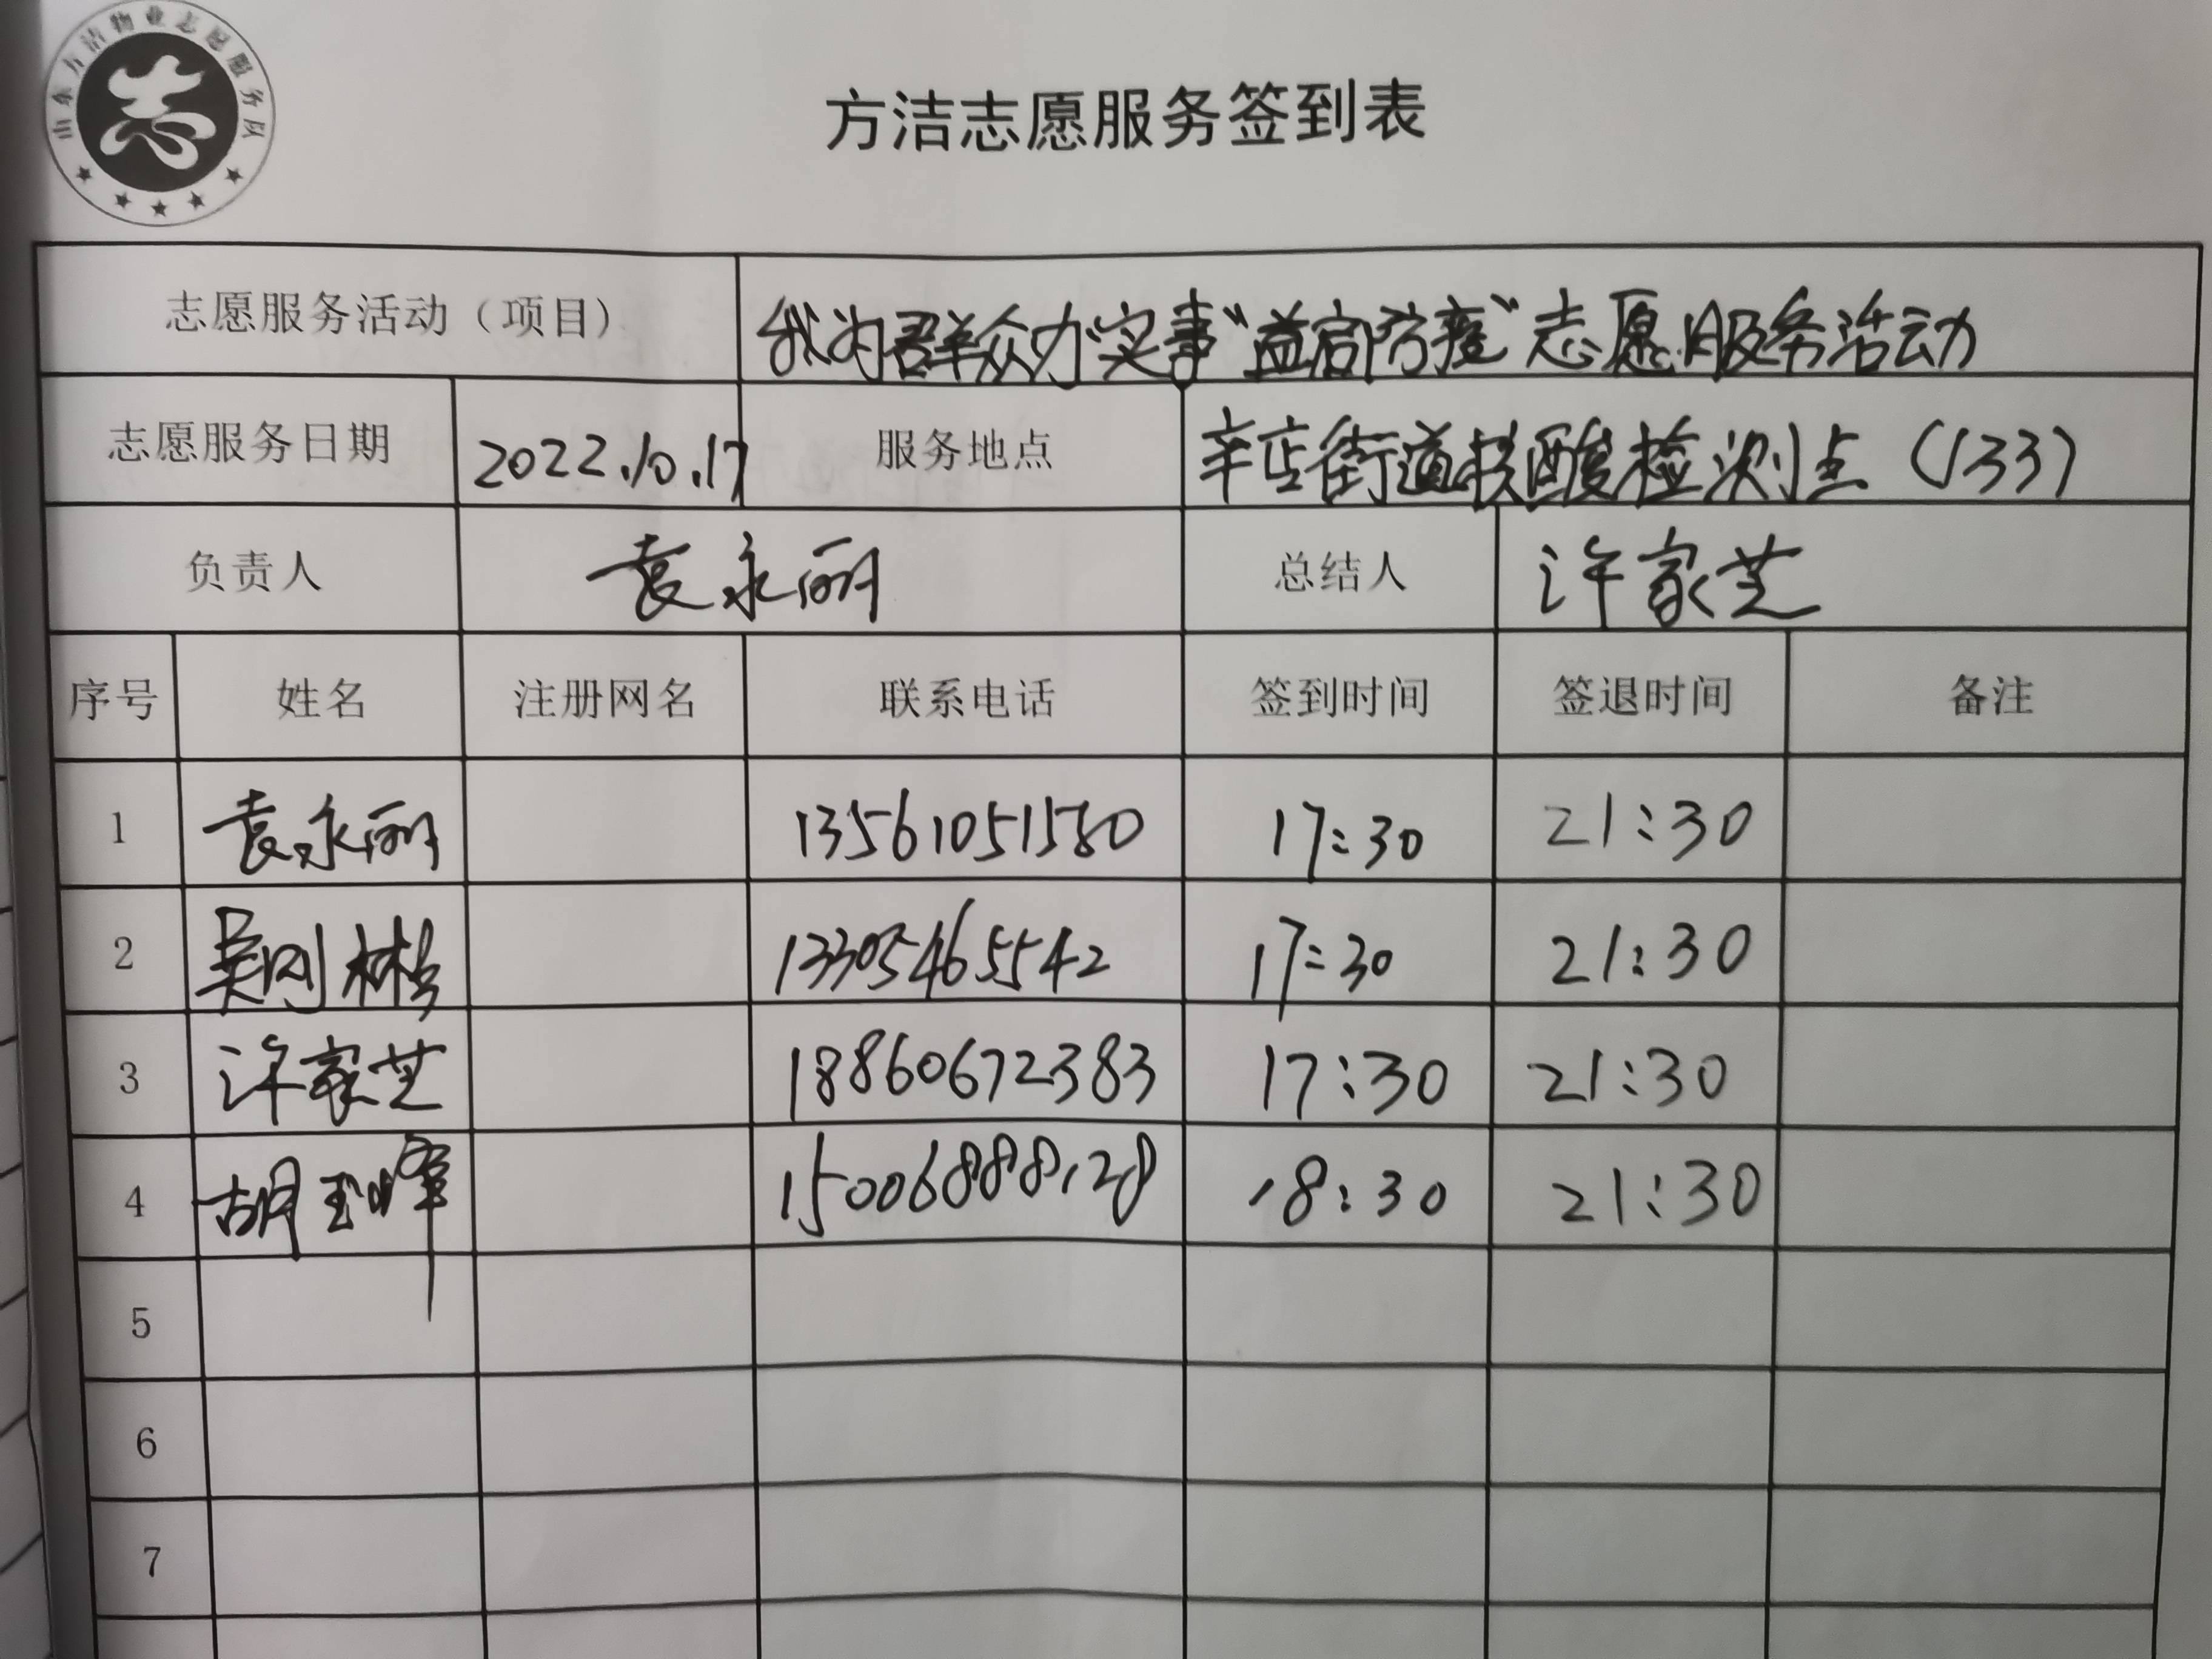 山东方洁物业志愿服务队
志
方洁志愿服务签到表
志愿服务活动（项目） 我为群众办实事“益启防疫”志愿服务活动
志愿服务日期 2022.10.17 服务地点 辛店街道核酸检测点（133）
负责人 袁永丽 总结人 许家芝
序号 姓名 注册网名 联系电话 签到时间 签退时间 备注
1 袁永丽 13561051580 17:30 21:30
2 吴刚彬 13305465542 17:30 21:30
3 许家芝 18860672383 17:30 21:30
4 胡玉峰 15006888128 18:30 21:30
5
6
7